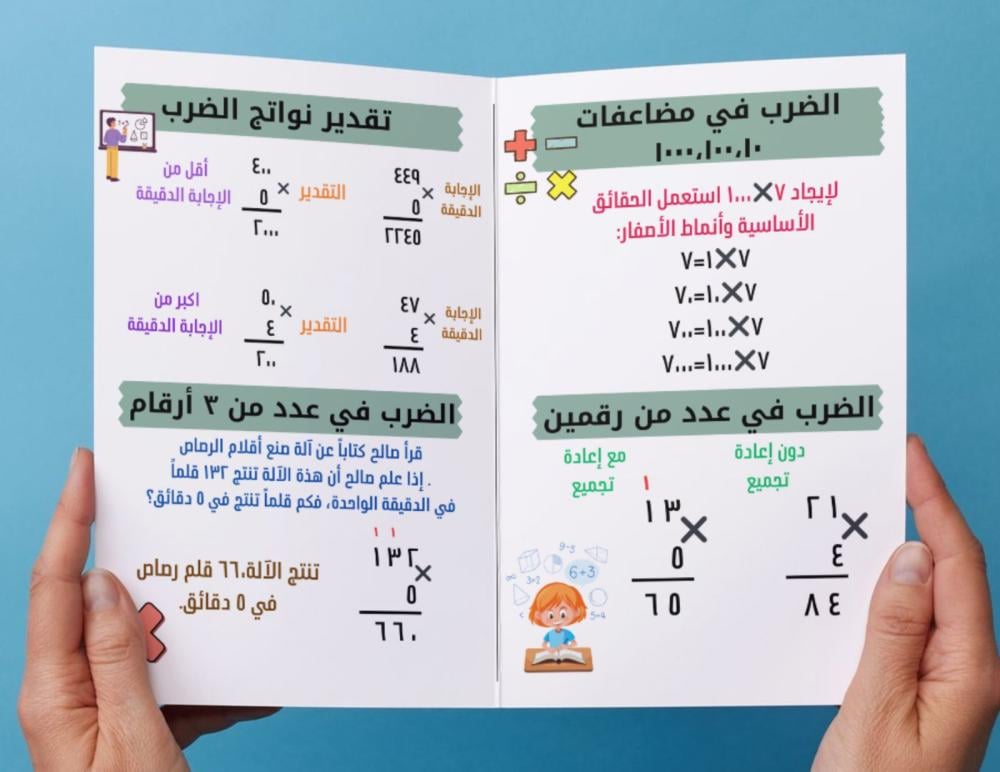 الضرب في مضاعفات
١٠،١٠٠،١٠٠٠
لإيجاد ٧×١٠٠٠ استعمل الحقائق
الأساسية وأنماط الأصفار:
٧×١=٧
٧×١٠=٧٠
٧×١٠٠=٧٠٠
٧×١٠٠٠=٧٠٠٠
الضرب في عدد من رقمين
دون إعادة
تجميع
٢١
×
٤
٨٤
مع إعادة
تجميع
١
١٣
×
٥
٦٥
9-5
6÷3
3×2
5÷4
تقدير نواتج الضرب
الإجابة
الدقيقة
٤٤٩
×
٥
٢٢٤٥
التقدير
٤٠٠
×
٥
٢٠٠٠
أقل من
الإجابة الدقيقة
الإجابة
الدقيقة
٤٧
×
٤
١٨٨
التقدير
٥٠
×
٤
٢٠٠
اكبر من
الإجابة الدقيقة
الضرب في عدد من ٣ أرقام
قرأ صالح كتاباً عن آلة صنع أقلام الرصاص
. إذا علم صالح أن هذة الآلة تنتج ١٣٢ قلماً
في الدقيقة الواحدة، فكم قلماً تنتج في ٥ دقائق؟
١ ١
١٣٢
×
٥
٦٦٠
تنتج الآلة٦٦٠ قلم رصاص
في ٥ دقائق.